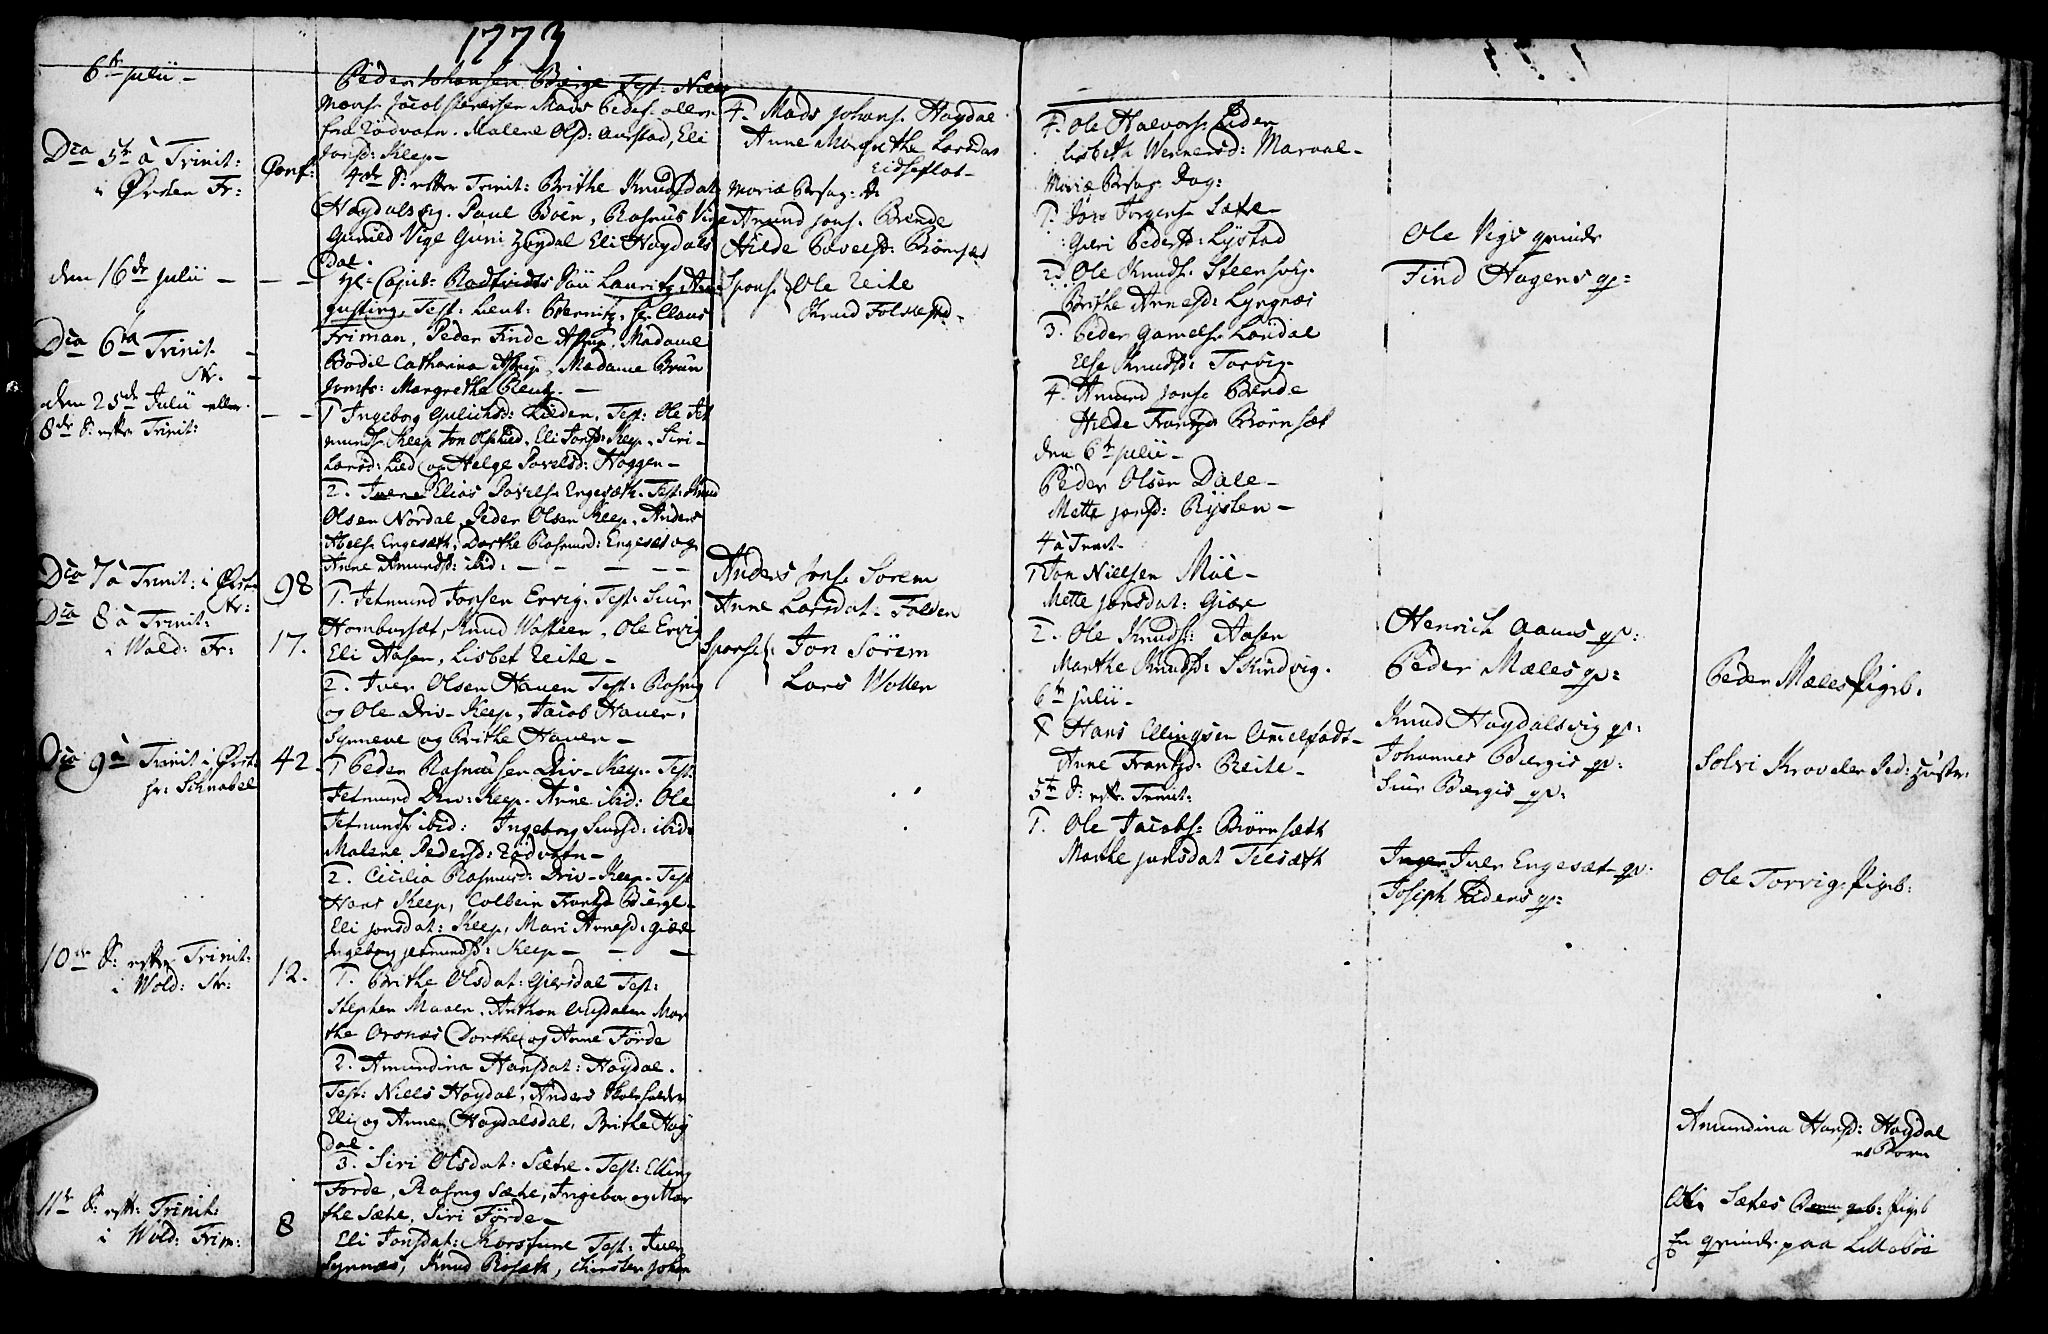 1773
6te Julii -
Dca 5te à Trinit:
i Ørsten Fr:
den 16de Julii -
Dca 6ta Trinit.
Str.
den 25de Julii eller
8de S: efter Trinit:
Dca 7 à Trinit: i Ørst:
Str:
Dca 8 à Trinit:
i Wold: Fr:
Dca 9 à Trinit: i Ørst:
hr: Schnabel
10de S: efter Trinit:
i Wold: Str:
11te S: eft: Trinit:
i Wold: Frim:
Conf:
98
17.
42
12.
8
Peder Johansen Berge Test: Niels
Monss Jacob Mads Peders. alle
fra Rødvatn. Malene Olsd: Aurstad, Eli
Jonsd: Keep -
4de S: efter Trinit: Brithe Knudsdat
Høydalsvig. Paul Boen, Rasmus Vige
Gunild Vige Guri Høydal Eli Høydals
Dal.
Hr: Capit: Søn Lauritz Au-
gustinus Test: Lieut: Hr Claus
Friman, Peder Finde Astrup, Madame
Bodil Catharina Astrup, Madame Brun
Jomfr: Margrethe
1 Ingeborg Liden, Test: Ole Jet
munds. Keep Jon Ols. Lied, Eli Jonsd: Keep, Siri
Larsd: Lied og Helge Povelsd: Haggen -
2. Iver Elias Povels. Engesæth. Test: Knud
Olsen Nordal, Peder Olsen Keep, Anders
Abels. Engesæth, Dorthe Rasmusd: Engesæt og
Anne Amundsd: ibid: -
1. Jetmund Jonsen Ervig. Test: Siur
Hornburset, Knud Wasteen, Ole Ervig
Eli Aasen, Lisbet Reite -
2. Iver Olsen Hauen Test: Rasmus
og Ole Driv-Keep, Jacob Hauen,
Synneve og Brithe Hauen -
1 Peder Rasmussen Driv-Keep. Test:
Jetmund Driv-Keep. Anne ibid: Ole
Jetmunds. ibid: Ingeborg Siursd: ibid:
Malene Pedersd: Rødvatn -
2. Cicilia Rasmusd: Driv-Keep. Test
Hans Keep, Colbein Frants. Bierge
Eli Jonsdat: Keep, Mari Arnesd: Giære
Ingeborg Jetmundsd: Keep -
1. Brithe Olsdat: Giersdal Test:
Stephen Maaen, Anthon Mar
the Osnæs Dorthe og Anne Førde
2. Amundina Hansdat: Høydal.
Test: Niels Høydal, Anders Skoleholder
Eli og Anne Høydalsdal, Brithe Høy
dal.
3. Siri Olsdat: Sætre. Test: Elling
Førde, Rasmus Sætre, Ingebor og Mar
the Sætre, Siri Førde -
Eli Jonsdat: Test: Iver
Synnæs, Knud Rosæth, Kirsten Johan
4. Mads Johans. Høydal
Anne Margrethe Larsdat
Eidseflot -
Mariæ Besøg: D:
Amund Jons. Brende
Hilde Povelsd: Biørnset
Spons. { Ole Reite
Knud Folkestad -
Anders Jons. Sørem
Anne Larsdat: Folden
Spons: { Jon Sørem
Lars Wollen
1. Ole Halvors. Liden
Lisbeth Wernersd: Maraal -
Mariæ Besøg. Dag:
1. Jon Jørgens. Sætre -
Guri Pedersd: Lystad
2. Ole Knuds. Steensvig.
Brithe Arnesd: Lyngnæs
3. Peder Gamels. Lordal
Else Knudsd: Torvig -
4. Amund Jons. Brende
Hilde Frantzd Biørnset
den 6te Julii -
Peder Olsen Dale -
Mette Jonsd: Rysten -
4 à Trinit -
1 Jon Nielsen Moe -
Mette Jonsdat: Giære
2. Ole Knuds: Aasen
Marthe Knudsd: Skindvig.
6te Julii -
1 Hans Ellingsen
Anne Frantzd: Reite -
5te S: eft. Trinit:
1. Ole Jacobs: Biørnsæth
Marthe Jonsdat Telsæth
Ole Vigs qvinde
Find Hagens qv:
Henrich Aams qv:
Peder Mæles qv:
Knud Høydalsvig qv:
Johannes Bergis qv:
Siur Bergis qv:
Iver Engesæt qv:
Joseph Lidens qv:
Peder Mæles Pigeb:
Solvi Krovelen Ped: hustr:
Ole Torvig: Pigeb:
Amundina Hansd: Høydal
et Barn
Ole Sætres Pigeb
En qvinde paa Lillebøe